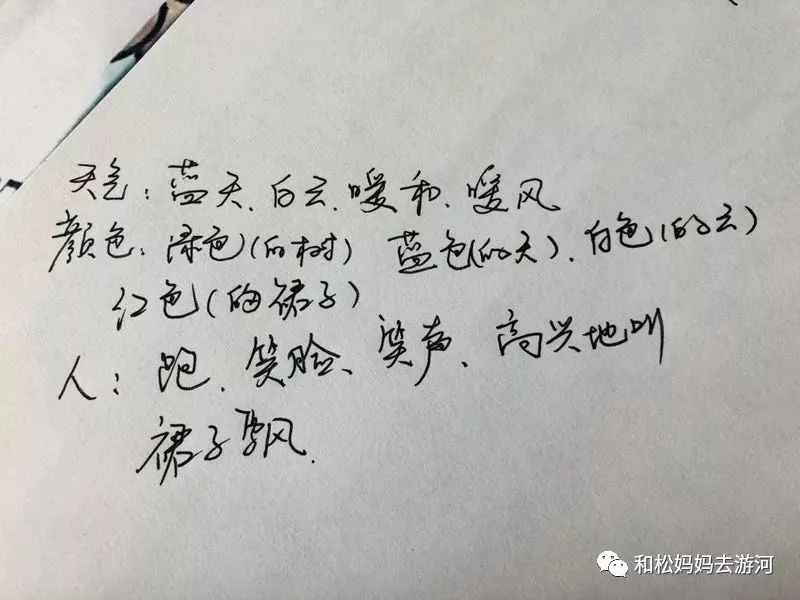 天气：蓝天、白云、暖和、暖风
颜色：绿色(的树) 蓝色(的天)、白色(的云)
红色(的裙子)
人：跑、笑脸、笑声、高兴地叫
裙子飘.
和松妈妈去游河